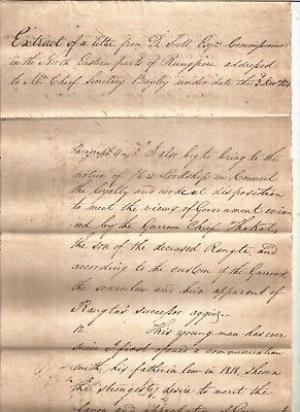 Extract of a letter from D. Scott Esqr Commissioner
in the North Eastern parts of Rungpore addressed
to Mr Chief Secretary Bayley under date the 3 Nov
Paragraph 4 I also beg to bring to the
notice of His Lordship in Council
the loyalty and disposition
to meet the views of Government evin
ced by the Garrow Chief
the son of the deceased Rangta, and
according to the custom of the Garrows
the son in law and heir apparent of
Rangta's successor
This young man has ever
since I first opened a communication
with his father in law in 1816, shewn
the strongest desire to merit the